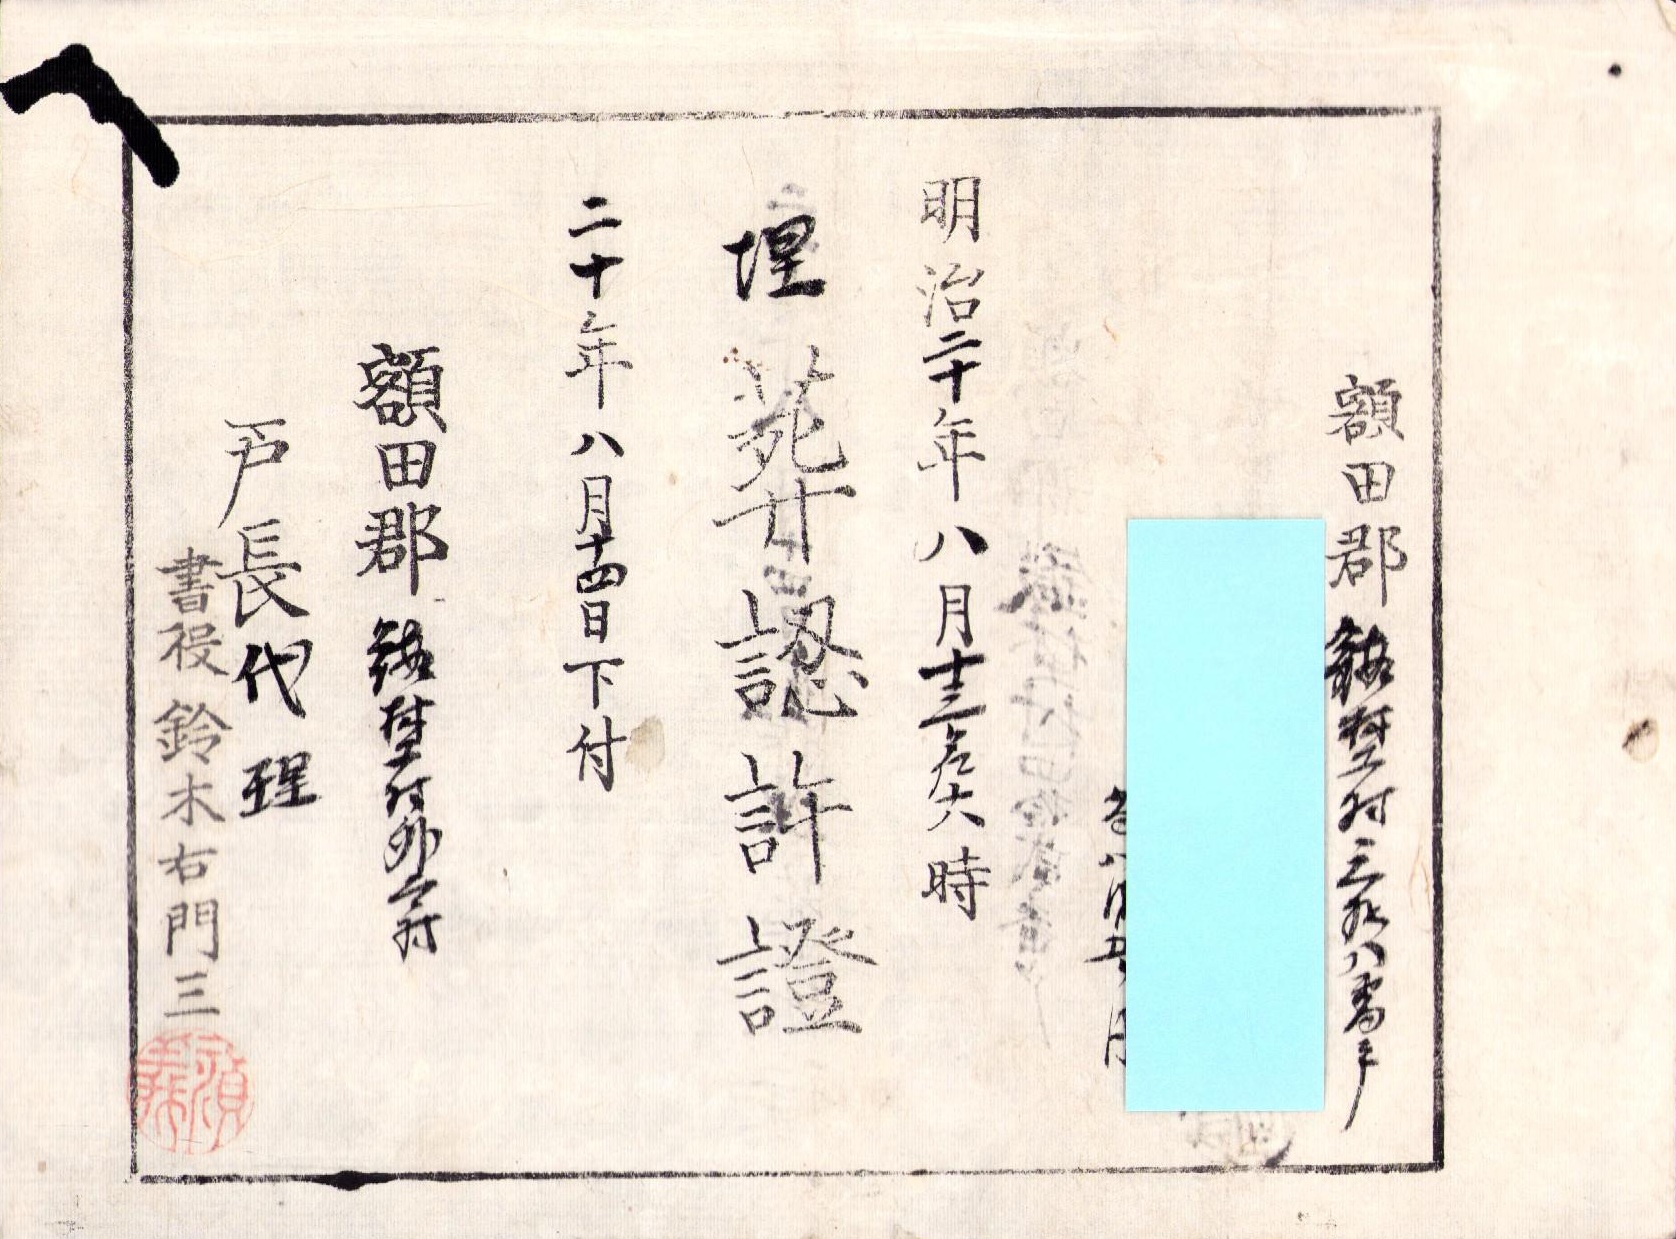 額田郡 鉢地村三拾八番戸
八月
明治二十年八月十三日午后六時
埋葬認許證
二十年八月十四日下付
額田郡 鉢地村外六ヶ村
戸長代理
書役 鈴木右門三